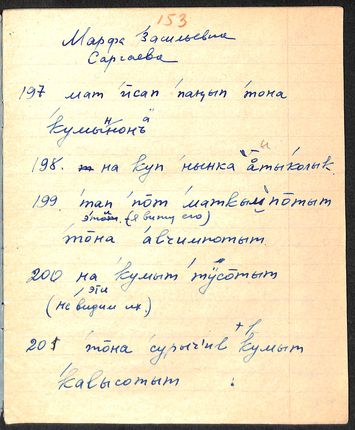 153
Марфа Васильевна
Саргаева
197 мат 'ӣсап 'паӊып 'то̄на
'кумы̄нонъ
198. на куп 'нынка
199 'тап 'по̄т 'маткы по̄тыт
(я вижу его)
'то̄на 'авчимпотыт
200 на 'кумыт
эти
(не видим их)
201 'то̄на 'сурычив 'кумыт
'кавысотыт